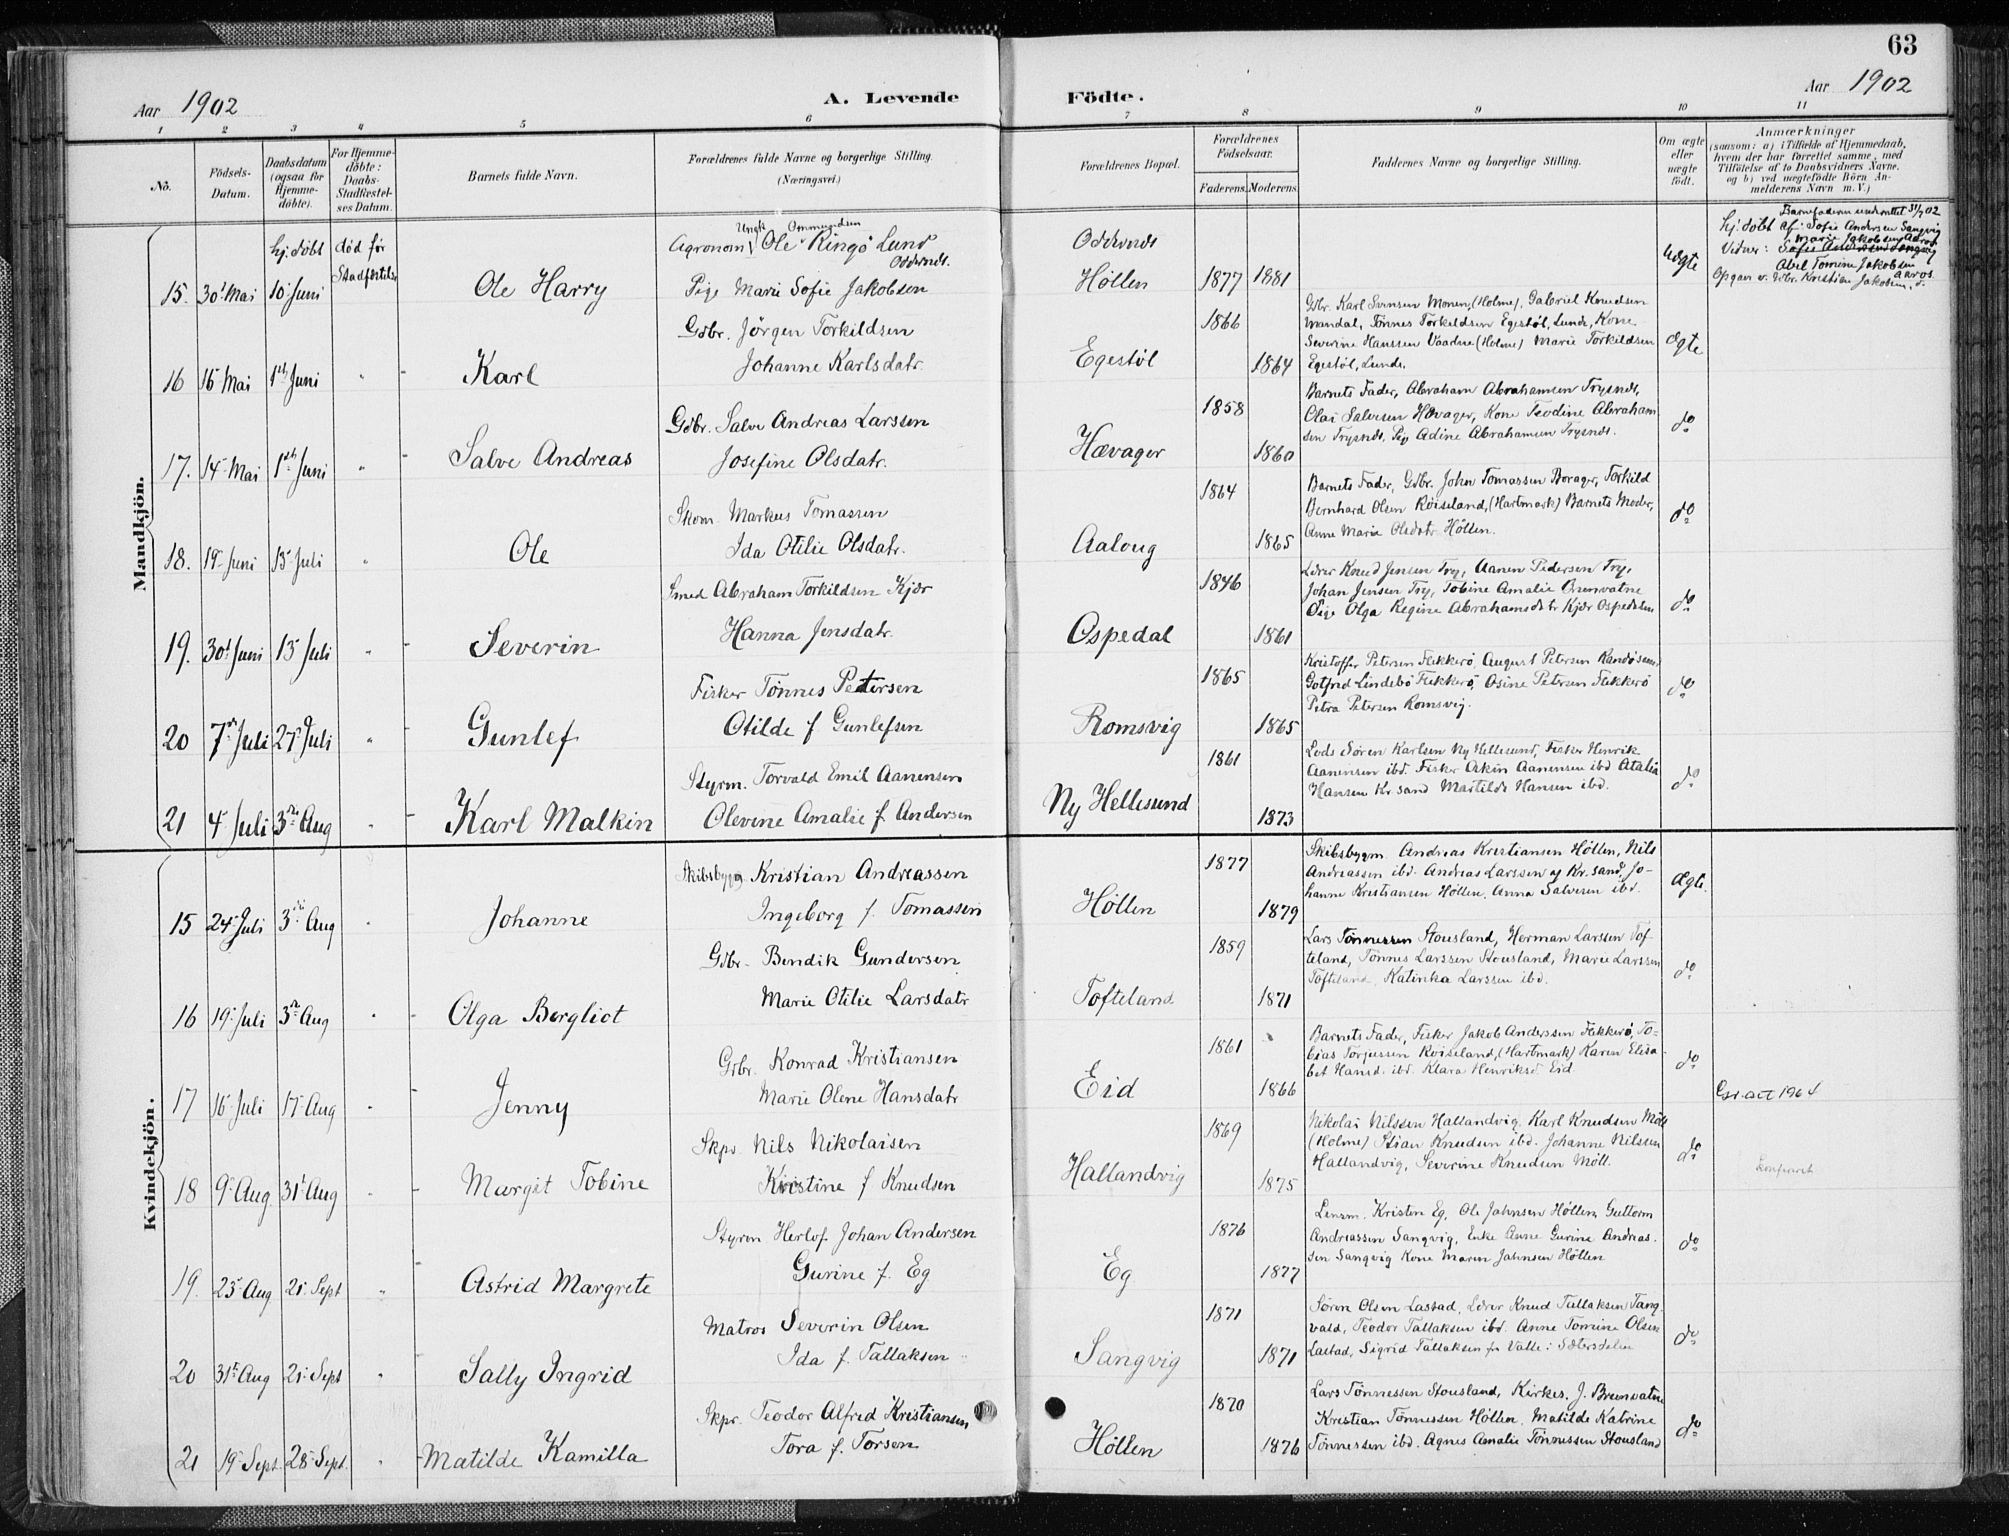 63
Aar 1902
A. Levende
Födte.
Aar 1902
1 2 3 4 5 6 7 8 9 10 11
No.
Födsels-Datum.
Daabsdatum (ogsaa for Hjemme-döbte).
For Hjemme-döbte: Daabs-Stadfæstel-ses Datum.
Barnets fulde Navn.
Forældrenes fulde Navne og borgerlige Stilling.
(Næringsvei.)
Forældrenes Bopæl.
Forældrenes Födselsaar.
Faderens. Moderens.
Faddernes Navne og borgerlige Stilling.
Om ægte eller uægte födt.
Anmærkninger
(saasom: a) i Tilfælde af Hjemmedaab,
hvem der har forrettet samme, med
Tilföielse af to Daabsvidners Navne.
og b) ved uægtefödte Börn An-
melderens Navn m. V.)
Mandkjön.
hj. döbt død før Stadfæstelse
Ungk Ommundsen
Agronom Ole Ringö Lund
Oddernes.
Oddernes
15. 30te Mai 10. Juni Ole Harry Pige Marie Sofie Jakobsen Höllen 1877 1881 uægte
Barnefaderen underrettet 31/7 02
hj. döbt af: Sofie Andersen Sangvig
Vidner: Marie Jakobsen Aaros
Abel Tomine Jakobsen
Aaros.
Opgav v. Gbr. Kristian Jakobsen, d.
Gdbr. Jörgen Torkildsen 1866
Gbr. Karl Svensen Monen, (Holme), Gabriel Knudsen
Mandal, Tönnes Torkildsen Egestöl, Lunde, Kone
Severine Hanssen Vaadne (Holme) Marie Torkildsen
Egestöl, Lunde.
16 15 Mai 1ste Juni " Karl Johanne Karlsdatr. Egestöl 1864 ægte
Gdbr. Salve Andreas Larssen 1858
Barnets Fader, Abraham Abrahamsen Trysnes,
Olai Salvesen Hævager, Kone Teodine Abraham
sen Trysnes, Pige Adine Abrahamsen Trysnes.
17. 14. Mai 1ste Juni " Salve Andreas Josefine Olsdatr. Hævager 1860 do
Skom. Markus Tomassen 1864
Barnets Fader, Gdbr. John Tomassen Borager, Torkild
Bernhard Olsen Röiseland, (Hartmark) Barnets Moder,
Anne Marie Olsdatr Höllen.
18. 19. Juni 13. Juli " Ole Ida Otilie Olsdatr. Aaloug 1865 do
Smed Abraham Torkildsen Kjær 1846
Lærer Knud Jensen Try, Aanen Pedersen Try,
Johan Jensen Try, Tobine Amalie
Pige Olga Regine Abrahamsdtr Kjær Ospedalen
19. 30te Juni 13 Juli " Severin Hanna Jensdatr. Ospedal 1861 do
Fisker Tönnes Petersen 1865
Kristoffer Petersen Flekkerö, August Petersen Randösund,
Gotfred Lindebö Flekkerö, Osine Petersen Flekkerö
Petra Petersen Romsvig.
20 7de Juli 27 Juli " Gunlef Otilde f Gunlefsen Romsvig 1865 do
Styrm. Torvald Emil Aanensen 1861
Lods Sören Karlsen Ny Hellesund, Fisker Henrik
Aanensen ibd. Fisker Askin Aanensen ibd Atalia
Hansen Kr.sand Martilde Hansen ibd.
21 4. Juli 3die Aug " Karl Malkin Olevine Amalie f Andersen Ny Hellesund 1873 do
Kvindekjön.
Skibsbygg. Kristian Andreassen 1877
Skibsbygm. Andreas Kristiansen Höllen, Nils
Andreassen ibd. Andreas Larssen af Kr.sand, Jo-
hanne Kristiansen Höllen. Anna Salvesen ibd.
15 24. Juli 3die Aug " Johanne Ingeborg f. Tomassen Höllen 1879 ægte.
Gdbr. Bendik Gundersen 1859
Lars Tönnessen Stousland, Herman Larssen Tof-
teland, Tönnes Larssen Stousland, Marie Larssen
Tofteland, Katinka Larssen ibd.
16 19. Juli 3die Aug " Olga Bergliot Marie Otilie Larsdatr Tofteland 1871 do
Gbr. Konrad Kristiansen 1861
Barnets Fader, Fisker Jakob Anderssen Flekkerö, To-
bias Torjussen Röiseland, (Hartmark) Karen Elisa-
bet Hansd. ibd. Klara Henriksd. Eid.
17 16. Juli 17. Aug " Jenny Marie Olene Hansdatr Eid 1866 do
att 1964
Skpr. Nils Nikolaisen 1869
Nikolai Nilssen Hallandvig, Karl Knudsen Möll
(Holme) Stian Knudsen ibd. Johanne Nilssen
Hallandvig, Severine Knudsen Möll.
18 9. Aug. 31te Aug Margit Tobine Kristine f Knudsen Hallandvig 1875 do
Styrm Herlof Johan Andersen 1876
Lensm. Kristen Eg, Ole Jahnsen Höllen, Guttorm
Andreassen Sangvig, Enke Anne Gurine Andreas-
sen Sangvig Kone Maren Jahnsen Höllen
19. 23. Aug 21. Sept " Astrid Margrete Gurine f. Eg Eg 1877 do
Matros Severin Olsen 1871
Sören Olsen Lastad, Lærer Knud Tallaksen Tang
vald, Teodor Tallaksen ibd. Anne Tomine Olsen
Lastad, Sigrid Tallaksen fra Valle i Sætersdalen
20 31te Aug 21. Sept " Sally Ingrid Ida f. Tallaksen Sangvig 1871 do
Skpr. Teodor Alfred Kristiansen 1870
Lars Tönnessen Stousland, Kirkes. J. Brunvatne
Kristian Tönnessen Höllen, Matilde Katrine
Tönnessen ibd. Agnes Amalie Tönnessen Stousland
21 19. Sept. 28. Sept. " Matilde Kamilla Tora f. Torsen Höllen 1876 do